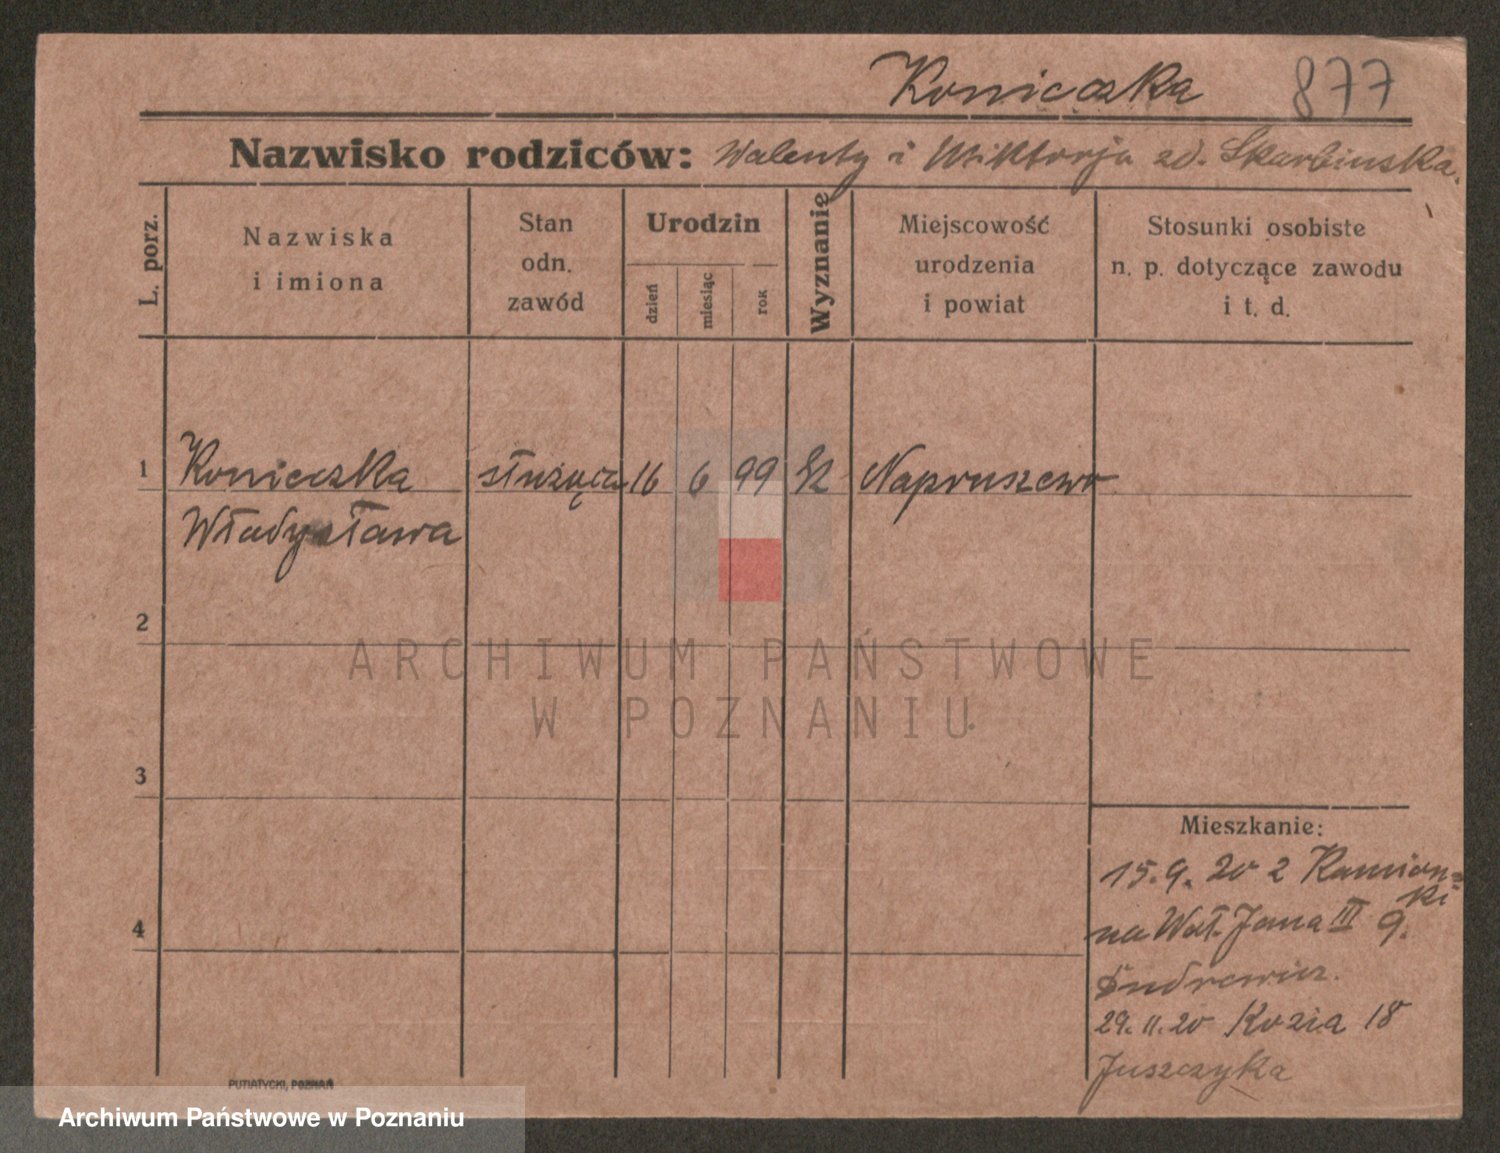 Konieczka 877
Nazwisko rodziców: Walenty i Wiktorja zd. Skarbinska.
L. porz.
Nazwiska
i imiona
Stan
odn.
zawód
Urodzin
dzień
miesiąc
rok
Wyznanie
Miejscowość
urodzenia
i powiat
Stosunki osobiste
n. p. dotyczące zawodu
i t. d.
1 Konieczka służąca 16 6 99 Napruszewo
Władysława
2
ARCHIWUM PAŃSTWOWE
W POZNANIU
3
Mieszkanie:
15.9.20 z
na Wał. Jana III 9.
4
29.11.20 Kozia 18
Juszczyka
PUTIATYCKI, POZNAŃ
Archiwum Państwowe w Poznaniu